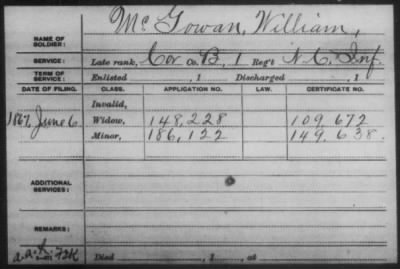 NAME OF SOLDIER: McGowan, William,
SERVICE: Late rank, Cor Co. B, 1 Reg't N.C. Inf.
TERM OF SERVICE: Enlisted , 1 Discharged , 1
DATE OF FILING. CLASS. APPLICATION NO. LAW. CERTIFICATE NO.
Invalid,
1867, June 6 Widow, 148,228 109.672
Minor, 186,122 149.638.
ADDITIONAL SERVICES:
REMARKS:
Died , 1 , at